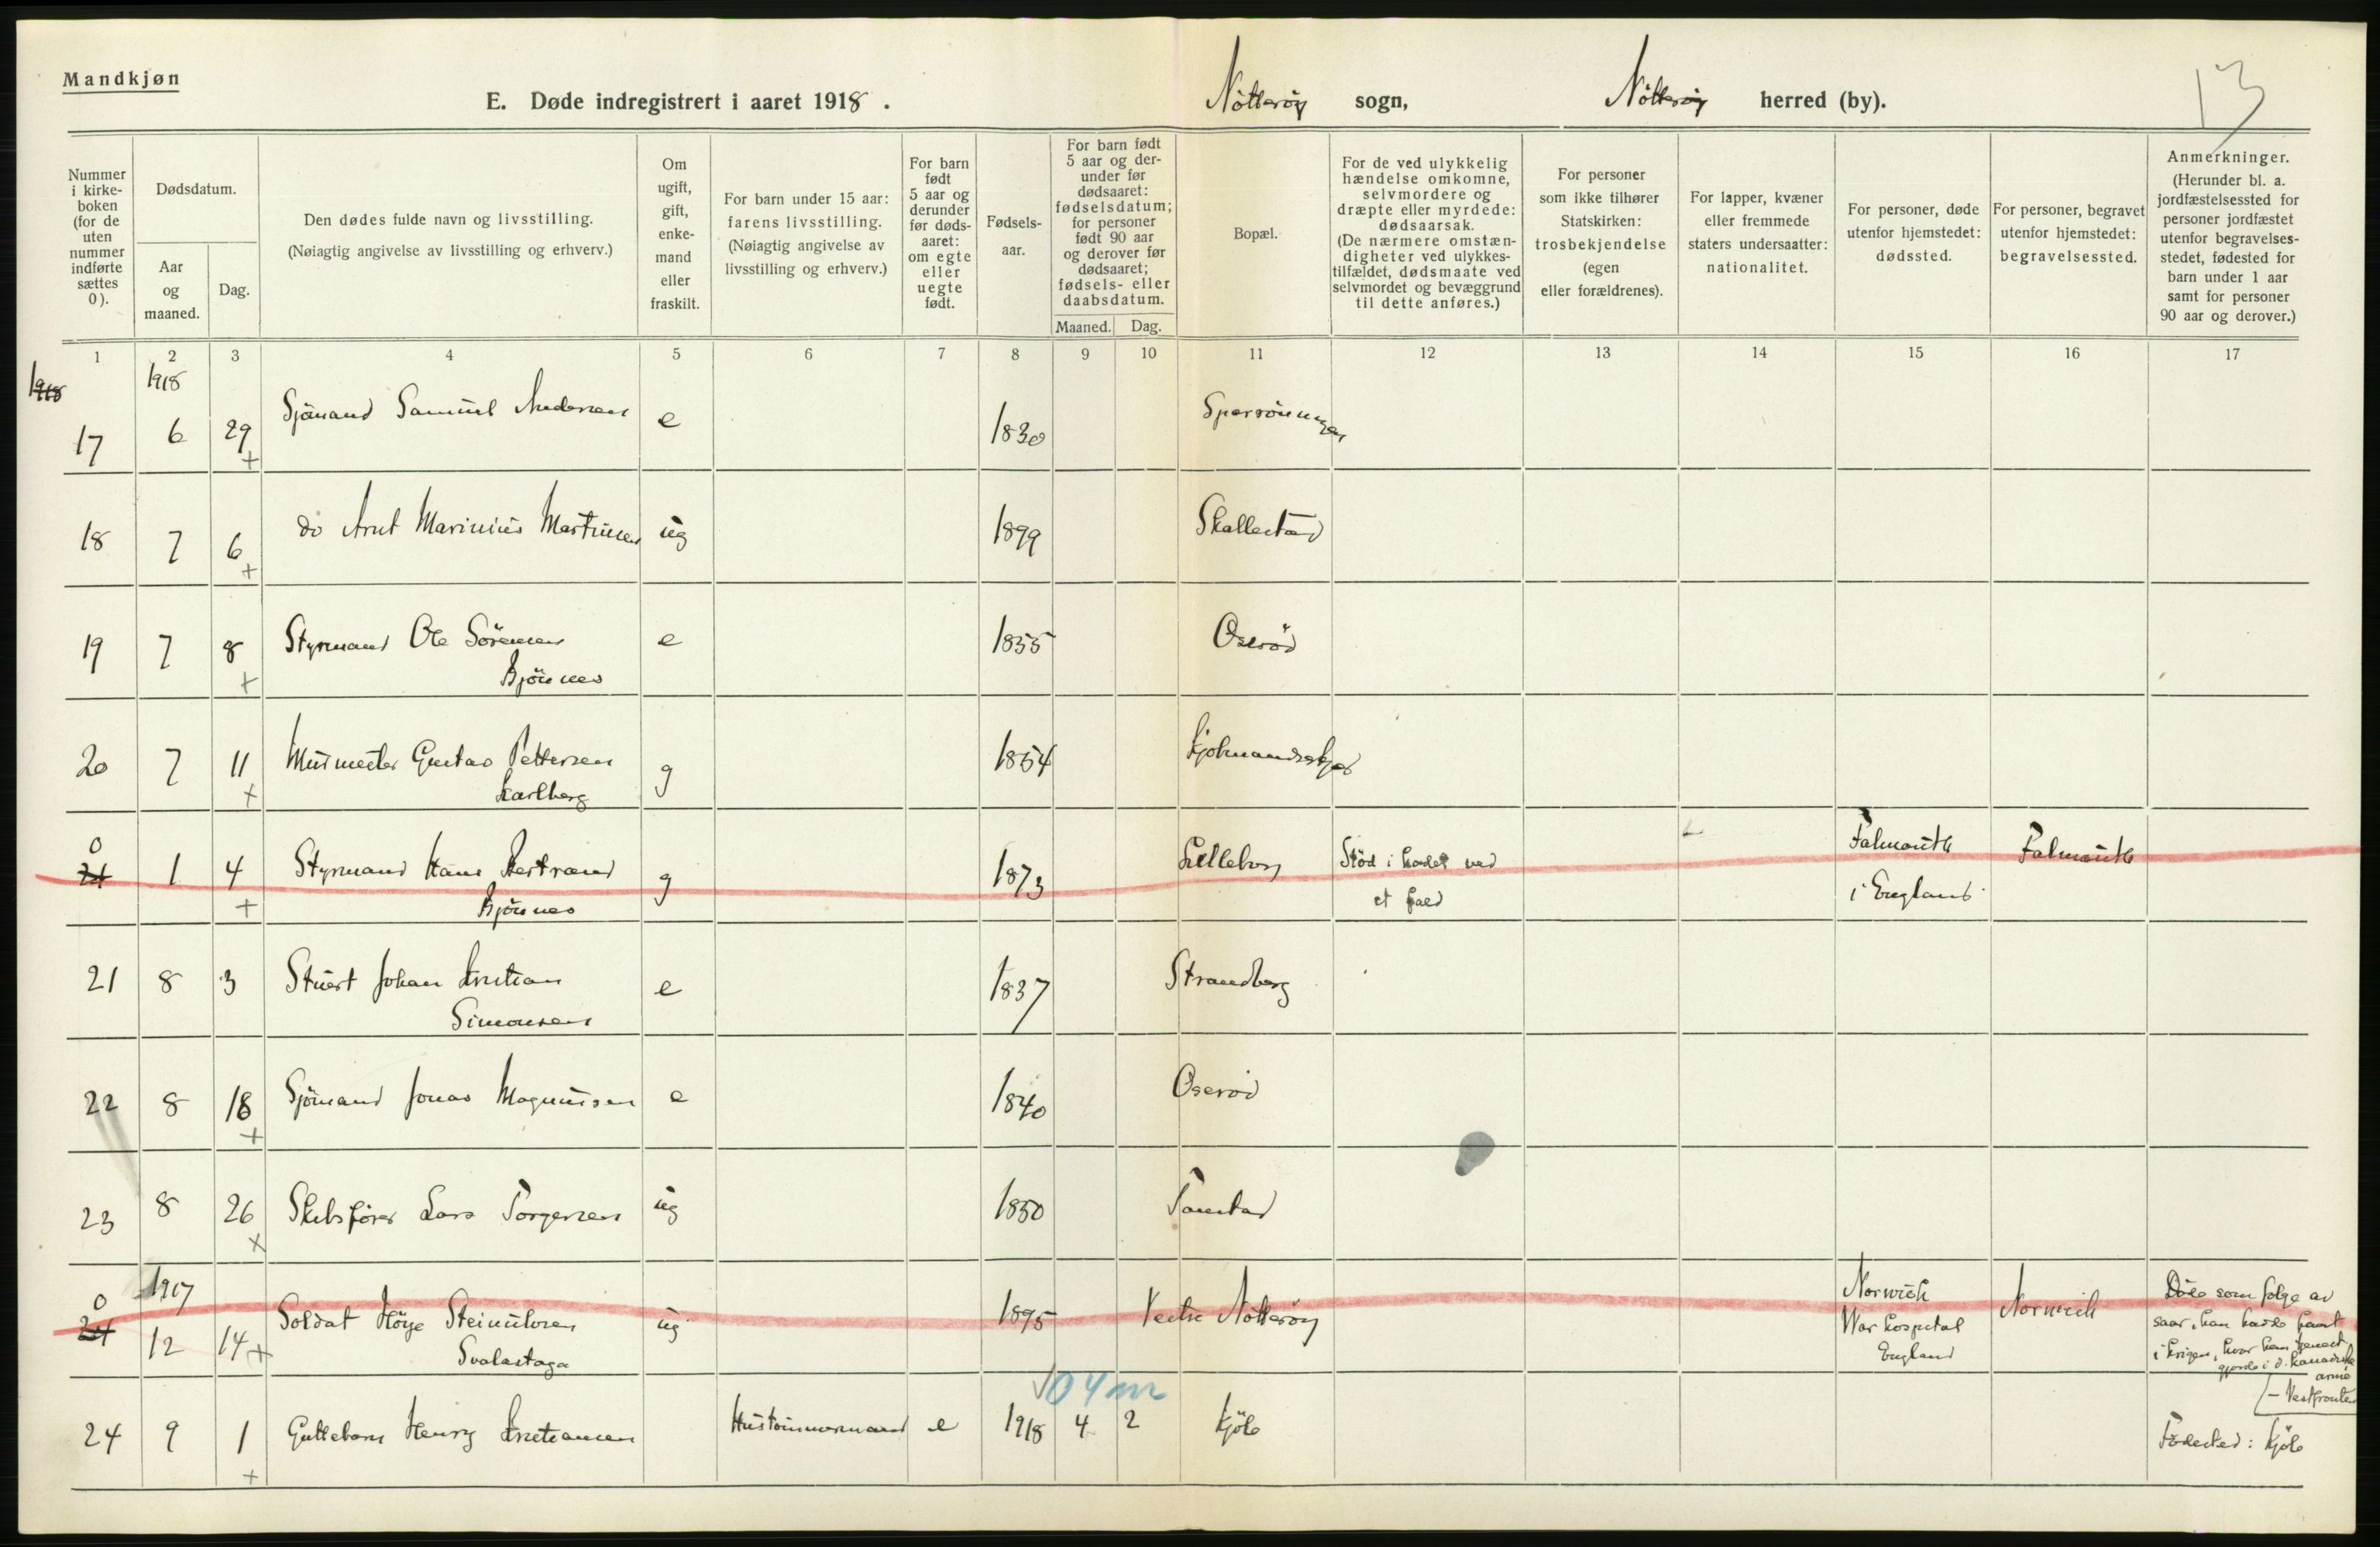 Mandkjøn
E. Døde indregistrert i aaret 1918.
Nötterøy sogn, Nötterøy herred (by).
13
Nummer i kirke-boken (for de uten nummer indførte sættes 0).
Dødsdatum.
Aar og maaned.
Dag.
Den dødes fulde navn og livsstilling.
(Nøiagtig angivelse av livsstilling og erhverv.)
Om ugift, gift, enke-mand eller fraskilt.
For barn under 15 aar: farens livsstilling.
(Nøiagtig angivelse av livsstilling og erhverv.)
For barn født 5 aar og derunder før døds-aaret: om egte eller uegte født.
Fødsels-aar.
For barn født 5 aar og der-under før dødsaaret: fødselsdatum; for personer født 90 aar og derover før dødsaaret; fødsels- eller daabsdatum.
Maaned. Dag.
Bopæl.
For de ved ulykkelig hændelse omkomne, selvmordere og dræpte eller myrdede: dødsaarsak.
(De nærmere omstæn-digheter ved ulykkes-tilfældet, dødsmaate ved selvmordet og bevæggrund til dette anføres.)
For personer som ikke tilhører Statskirken: trosbekjendelse (egen eller forældrenes).
For lapper, kvæner eller fremmede staters undersaatter: nationalitet.
For personer, døde utenfor hjemstedet: dødssted.
For personer, begravet utenfor hjemstedet: begravelsessted.
Anmerkninger.
(Herunder bl. a. jordfæstelsessted for personer jordfæstet utenfor begravelses-stedet, fødested for barn under 1 aar samt for personer 90 aar og derover.)
1 2 3 4 5 6 7 8 9 10 11 12 13 14 15 16 17
1918 1918
17 6 29 Sjömand Samuel Andersen e 1830
+
18 7 6 do Arnt Marinius Martinsen ug 1899 Skallestad
+
19 7 8 Styrmand Ole Sörensen e 1855 Oserød
+ Bjönnes
20 7 11 Murmester Gustav Pettersen g 1854 Kjølmandskjær
+ Karlberg
0
21 1 4 Styrmand Hans Bertrand g 1873 Lilleborg Stöd i hodet ved Falmouth Falmouth
+ Bjönnes et fald i England
21 8 3 Stuert Johan Kristian e 1837 Strandberg
Simonsen
22 8 18 Sjömand Jonas Magnussen e 1840 Oserød
+
23 8 26 Skibsfører Lars Torgersen ug 1850
x
0 1917
24 12 14 + Soldat Höye Steinulvsen ug 1895 Vestre Nötterøy Norwich Norwich Döde som følge av
Svalastoga War hospital saar, han hadde faat
England i krigen, hvor han tjeneste
gjorde i d. kanadiske
arme
- Vestfronten
04 m
24 9 1 Guttebarn Henry Kristiansen Hustömmermand e 1918 4 2 Kjöle Födested: Kjöle
+